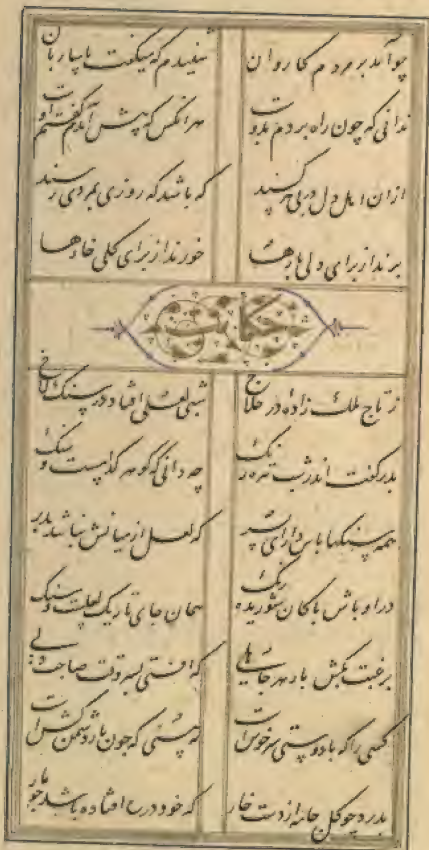 چو آمد بر مردم کاروان شنیدم که میگفت با ساربان
ندانی که چون راه بردم بدوست هر آنکس که پیش آمدم گفتم اوست
از آن اهل دل در پی هر کسند که باشد که روزی بمردی رسند
برند از برای دلی بارها خورند از برای گلی خارها
حکایت
ز تاج ملک زاده در ملاخ شبی لعلی افتاد در سنگلاخ
پدر گفت اندر شب تیره رنگ چه دانی که گوهر کدامست و سنگ
همه سنگها پاس دار ای پسر که لعل از میانش نباشد بدر
در اوباش پاکان شوریده رنگ همان جای تاریک لعلست و سنگ
برغبت بکش بار هر جاهلی که افتی بسروقت صاحب دلی
کسی را که با دوستی سرخوش است نه بینی که چون بار دشمن کش است
بدرد چو گل جامه از دست خار که خود در افتاده باشد چو مار